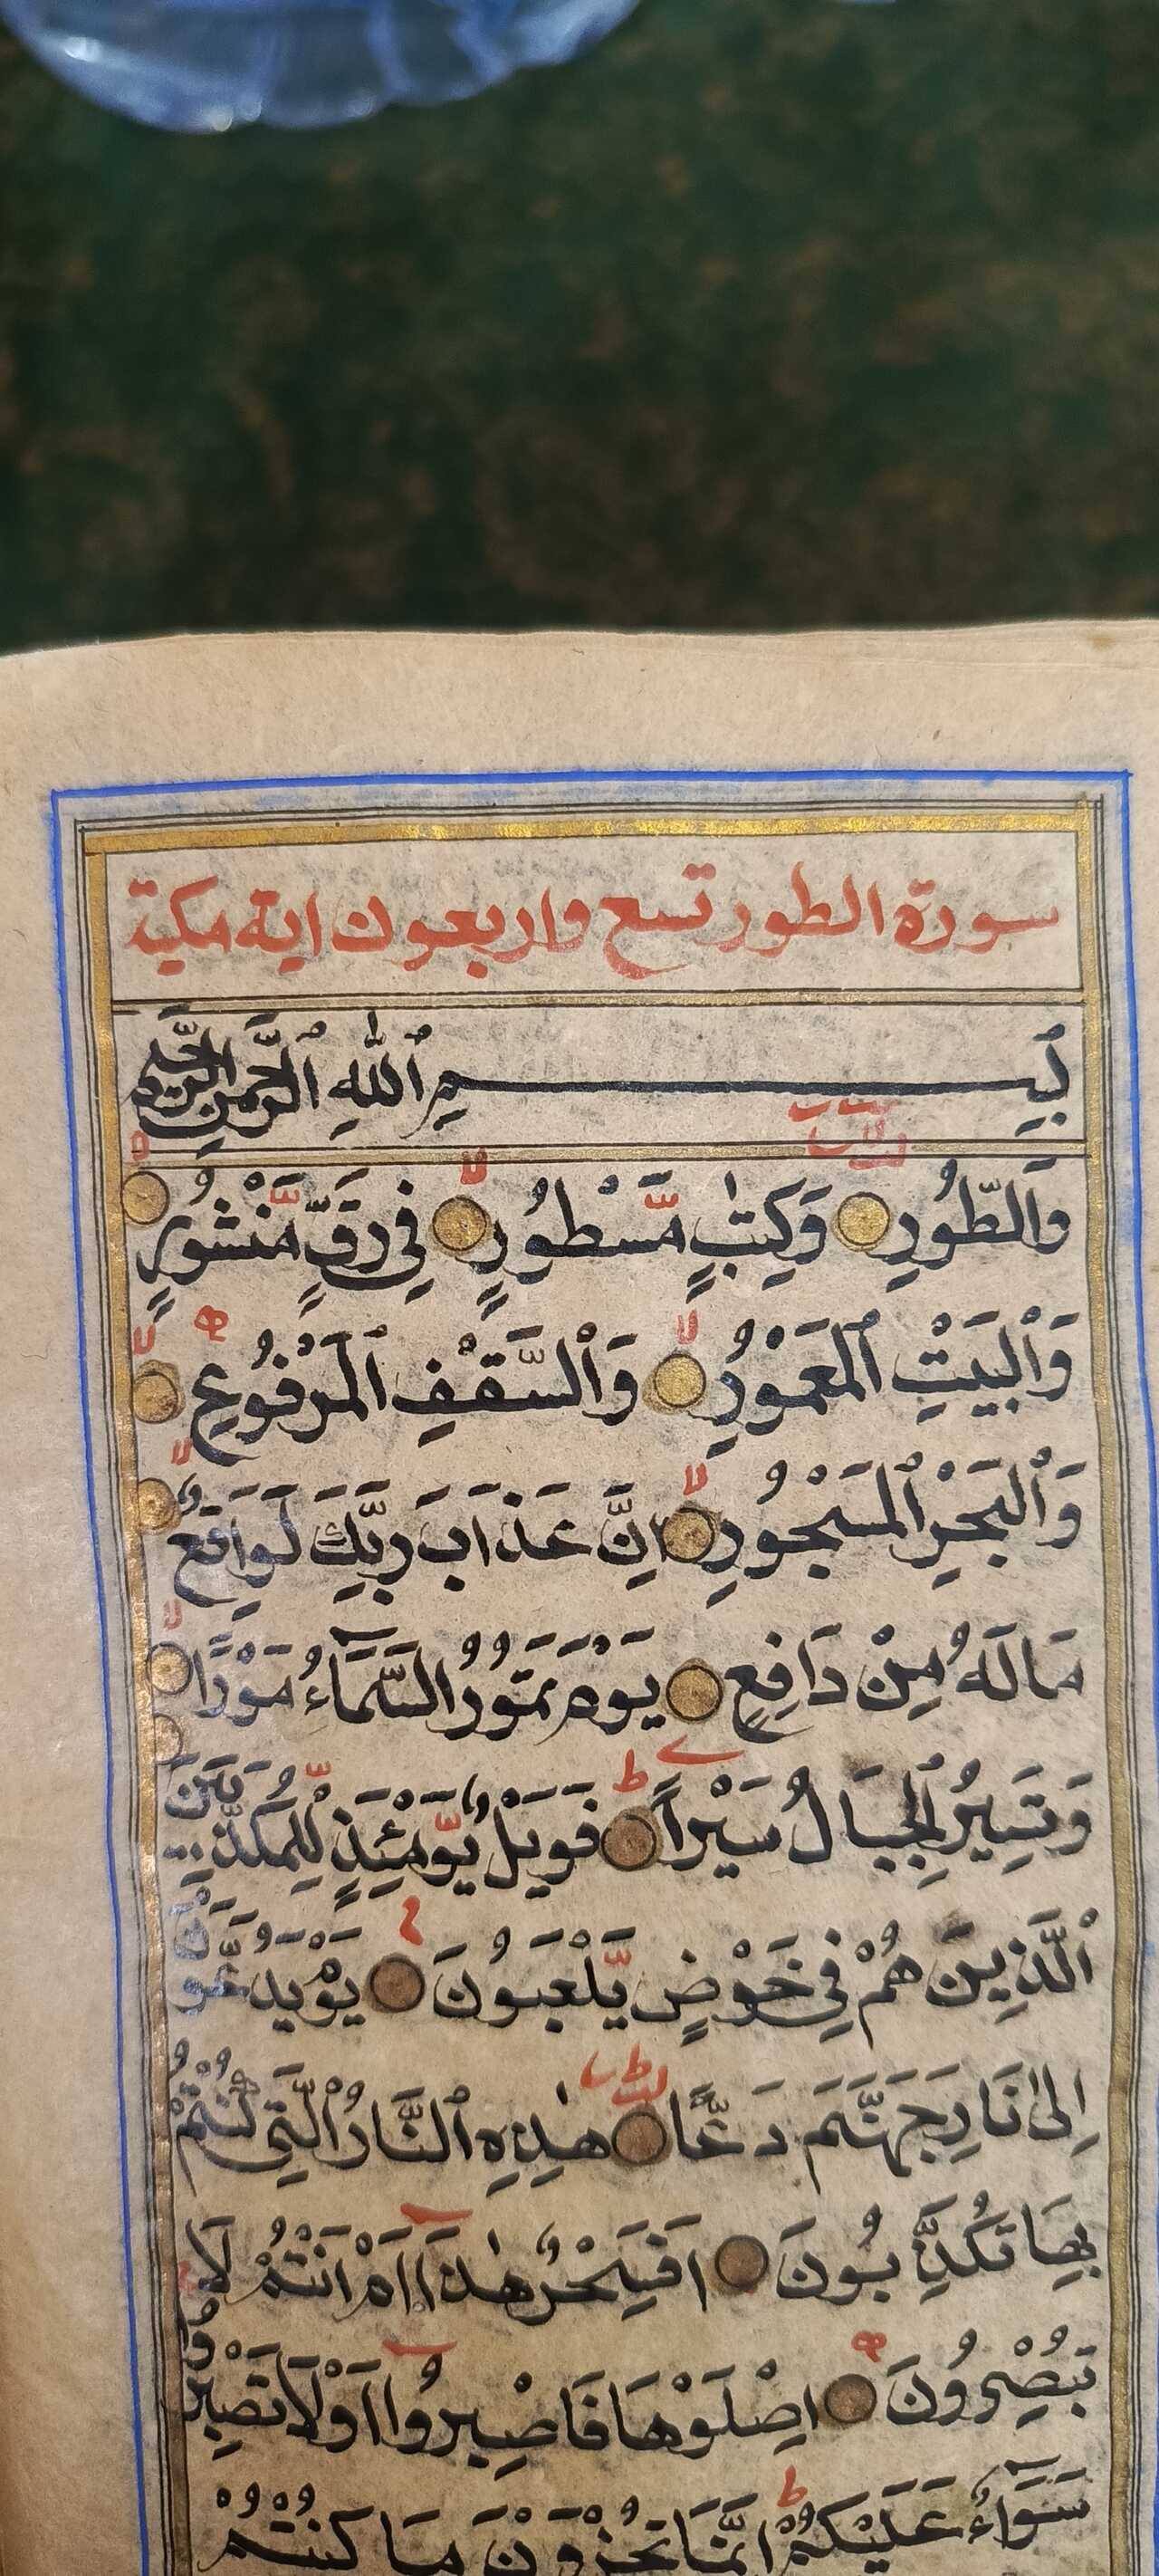 سورة الطور تسع واربعون اية مكية
بِسْمِ ٱللّٰهِ ٱلرَّحْمٰنِ ٱلرَّحِيمِ
وَالطُّورِ وَكِتٰبٍ مَّسْطُورٍ فِي رَقٍّ مَّنْشُورٍ
وَالْبَيْتِ ٱلْمَعْمُورِ وَالسَّقْفِ ٱلْمَرْفُوعِ
وَٱلْبَحْرِ ٱلْمَسْجُورِ اِنَّ عَذَابَ رَبِّكَ لَوَاقِعٌ
مَالَهُ مِنْ دَافِعٍ يَوْمَ تَمُورُ السَّمَآءُ مَوْرًا
وَتَسِيرُ ٱلْجِبَالُ سَيْرًا فَوَيْلٌ يَّوْمَئِذٍ لِّلْمُكَذِّبِينَ
ٱلَّذِينَ هُمْ فِي خَوْضٍ يَّلْعَبُونَ يَوْمَ يُدَعُّونَ
اِلٰى نَارِ جَهَنَّمَ دَعًّا هٰذِهِ ٱلنَّارُ الَّتِي كُنْتُمْ
بِهَا تُكَذِّبُونَ اَفَسِحْرٌ هٰذَآ اَمْ اَنْتُمْ لَا
تُبْصِرُونَ اِصْلَوْهَا فَاصْبِرُوآ اَوْ لَا تَصْبِرُوا
سَوَآءٌ عَلَيْكُمْ اِنَّمَا تُجْزَوْنَ مَا كُنْتُمْ